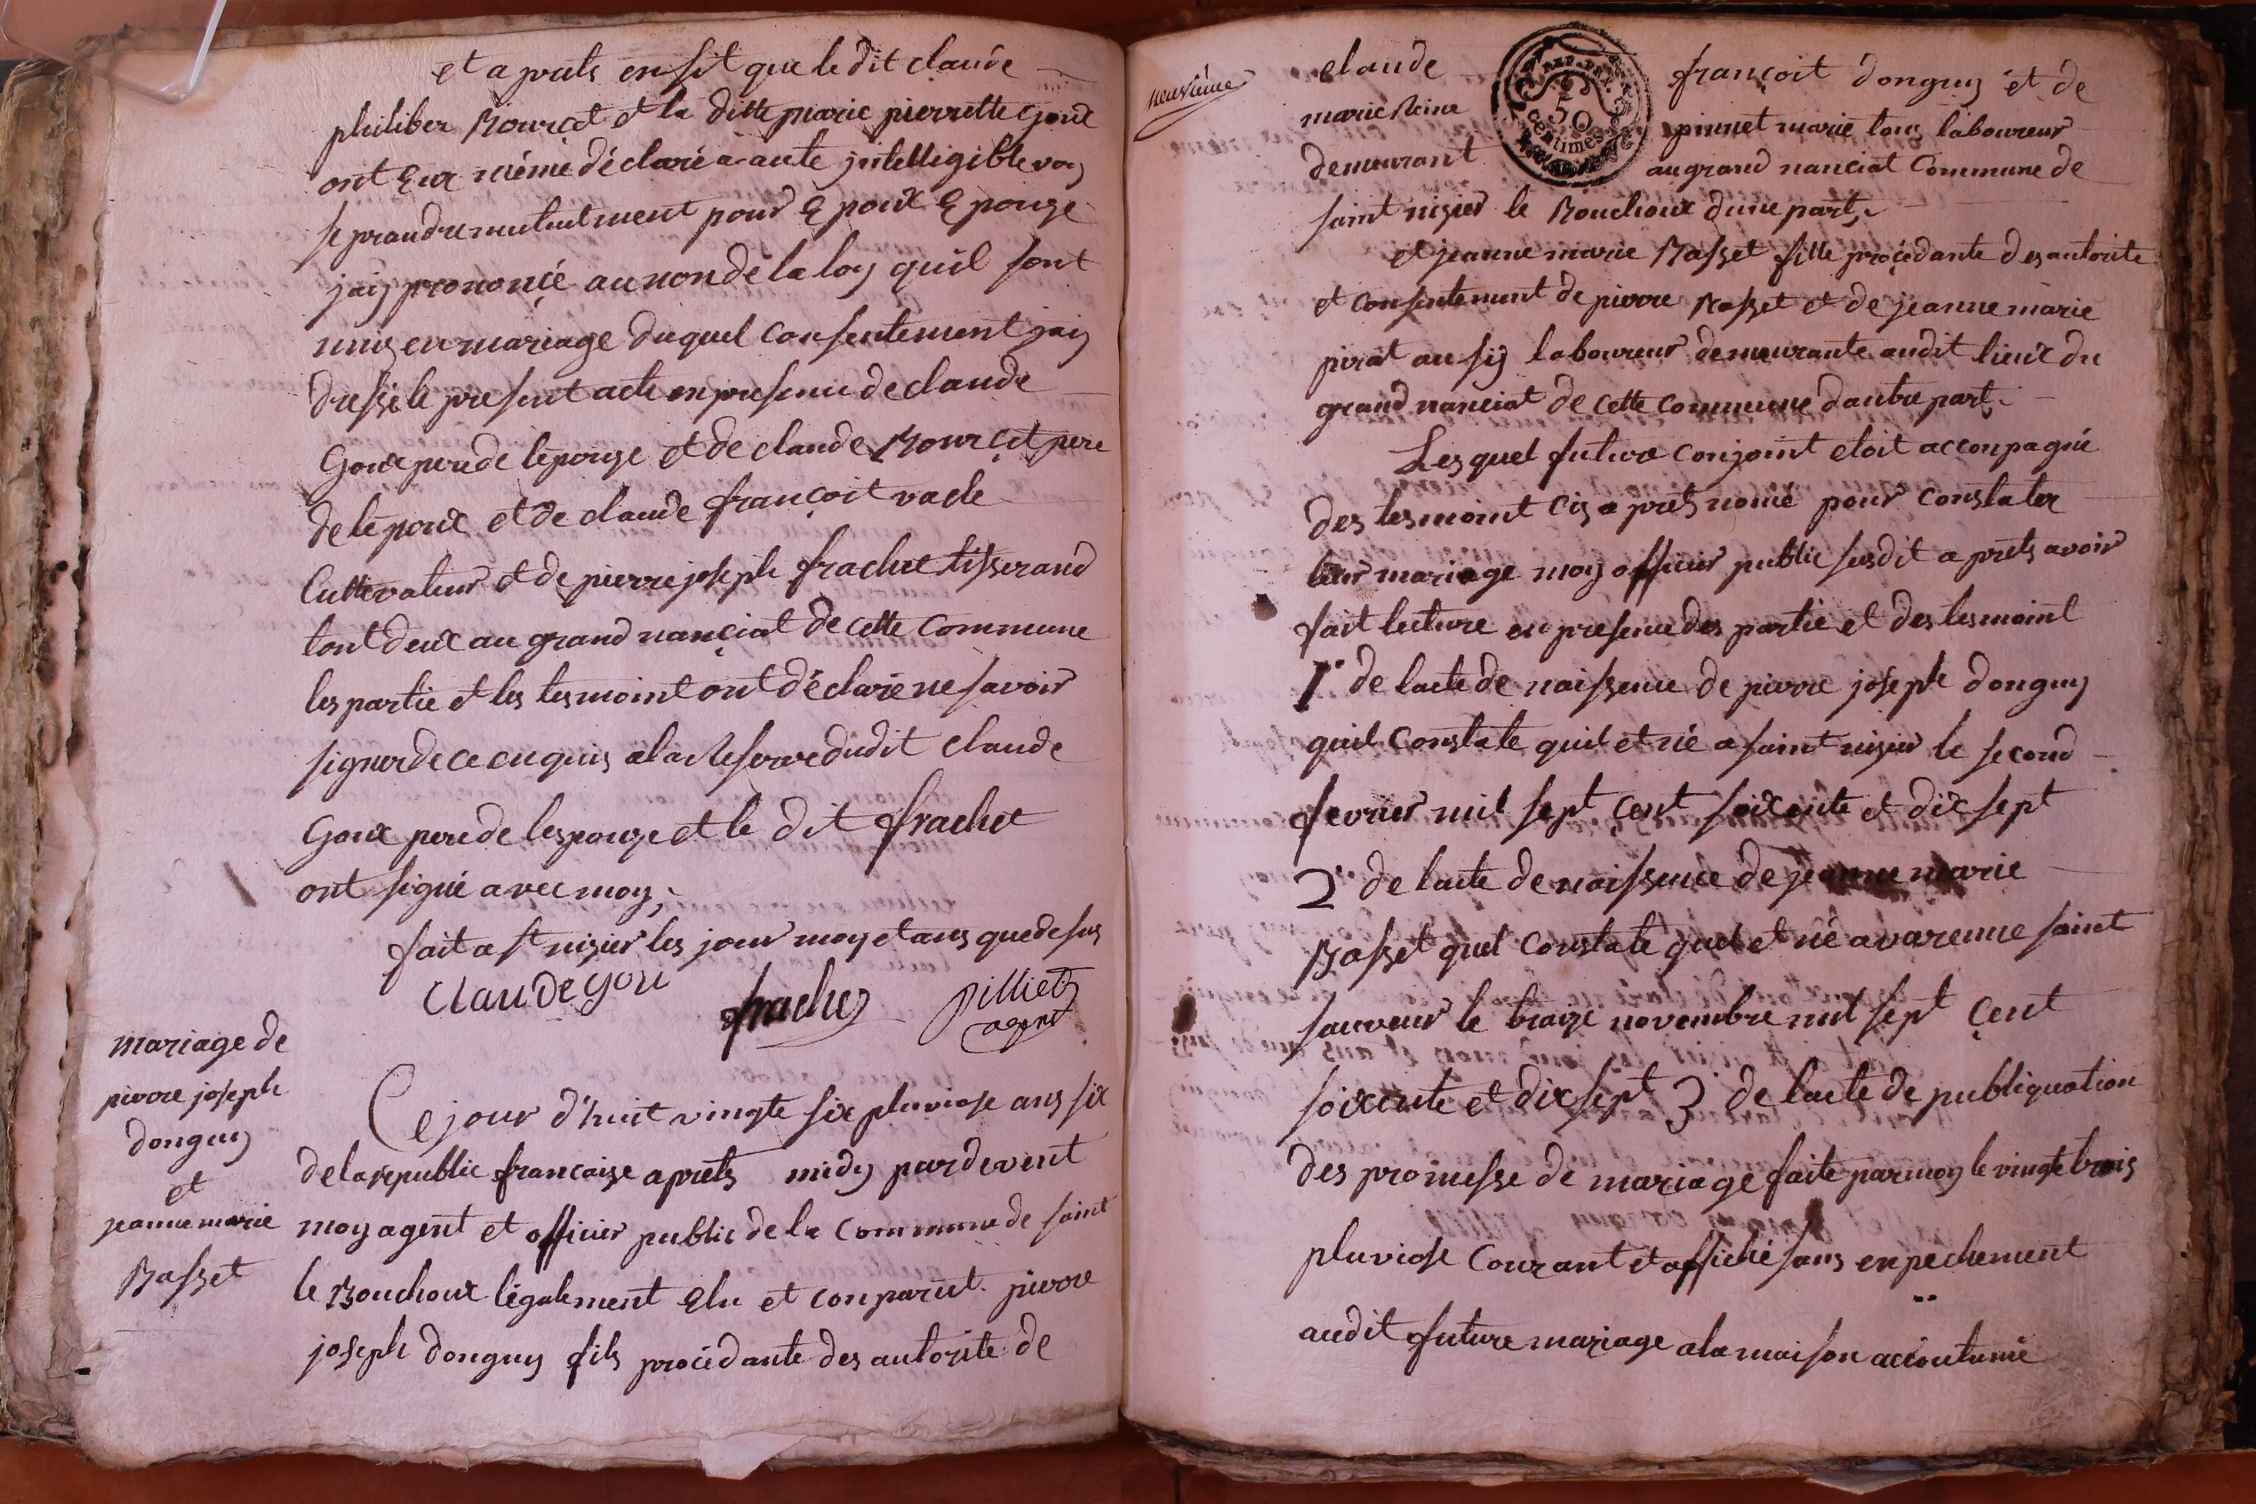 et a prets ensit que le dit claude
philiber Bourcet et la ditte marie pierrette goux
ont Eux même déclaré a aute jntelligible voy
se prandre mutuelment pour Epoux Epouze
jaij prononcé au non de la loy quil sont
unis en mariage duquel consentement jaij
dressé le present acte en presence de claude
Goux pere de lepouze et de claude Bourcet pere
de lépoux et de claude françoit vacle
Cultevateur et de pierre joseph frachet tisserand
tout deux au grand nanciat de cette commune
les partie et les tesmoint ont déclaré ne savoir
signer de ce enquis a la Reserve dudit claude
Goux pere de lespouze et le dit frachet
ont signé avec moy;
fait a st nizier les jour moy et ans que desus
Claude gou frachet Pilliet
agent
mariage de
pierre joseph
donguy
et
jeanne marie
Basset
Ce jour d'huit vingte six pluviose ans six
de la republic française aprets midy pardevent
moy agent et officier public de la commune de saint
le Bouchoux légalement Elu et conparut pierre
joseph donguy fils procédante des autorite de
neuvième
claude françoit donguy et de
marie Reine pinnet marie tous laboureur
demeurant au grand nanciat Commune de
REP. FRA.
50
centimes
saint nizier le Bouchoux dune part,
et jeanne marie Basset fille procédante des autorite
et consentement de pierre Basset et de jeanne marie
pirat ausij laboureur demeurante audit lieux du
grand nanciat de cette commune dautre part.
Les quel future conjoint etoit acconpagné
des tesmoint cij a prets nomé pour constater
leur mariage moy officier public susdit a prets avoir
fait lecture en presence des partie et des tesmoint
1° de lacte de naissence de pierre joseph donguy
quil constate quil et né a saint nizier le second
fevrier mil sept cent soixente et dix sept
2° de lacte de naissence de jeanne marie
Basset quel constate quel et né a varenne saint
sauveur le traize novembre mil sept cent
soixente et dix sept 3° de lacte de publiquation
des promesse de mariage faite par moy le vingte trois
pluviose courant et affiché sans enpechement
audit future mariage a la maison accoutumé